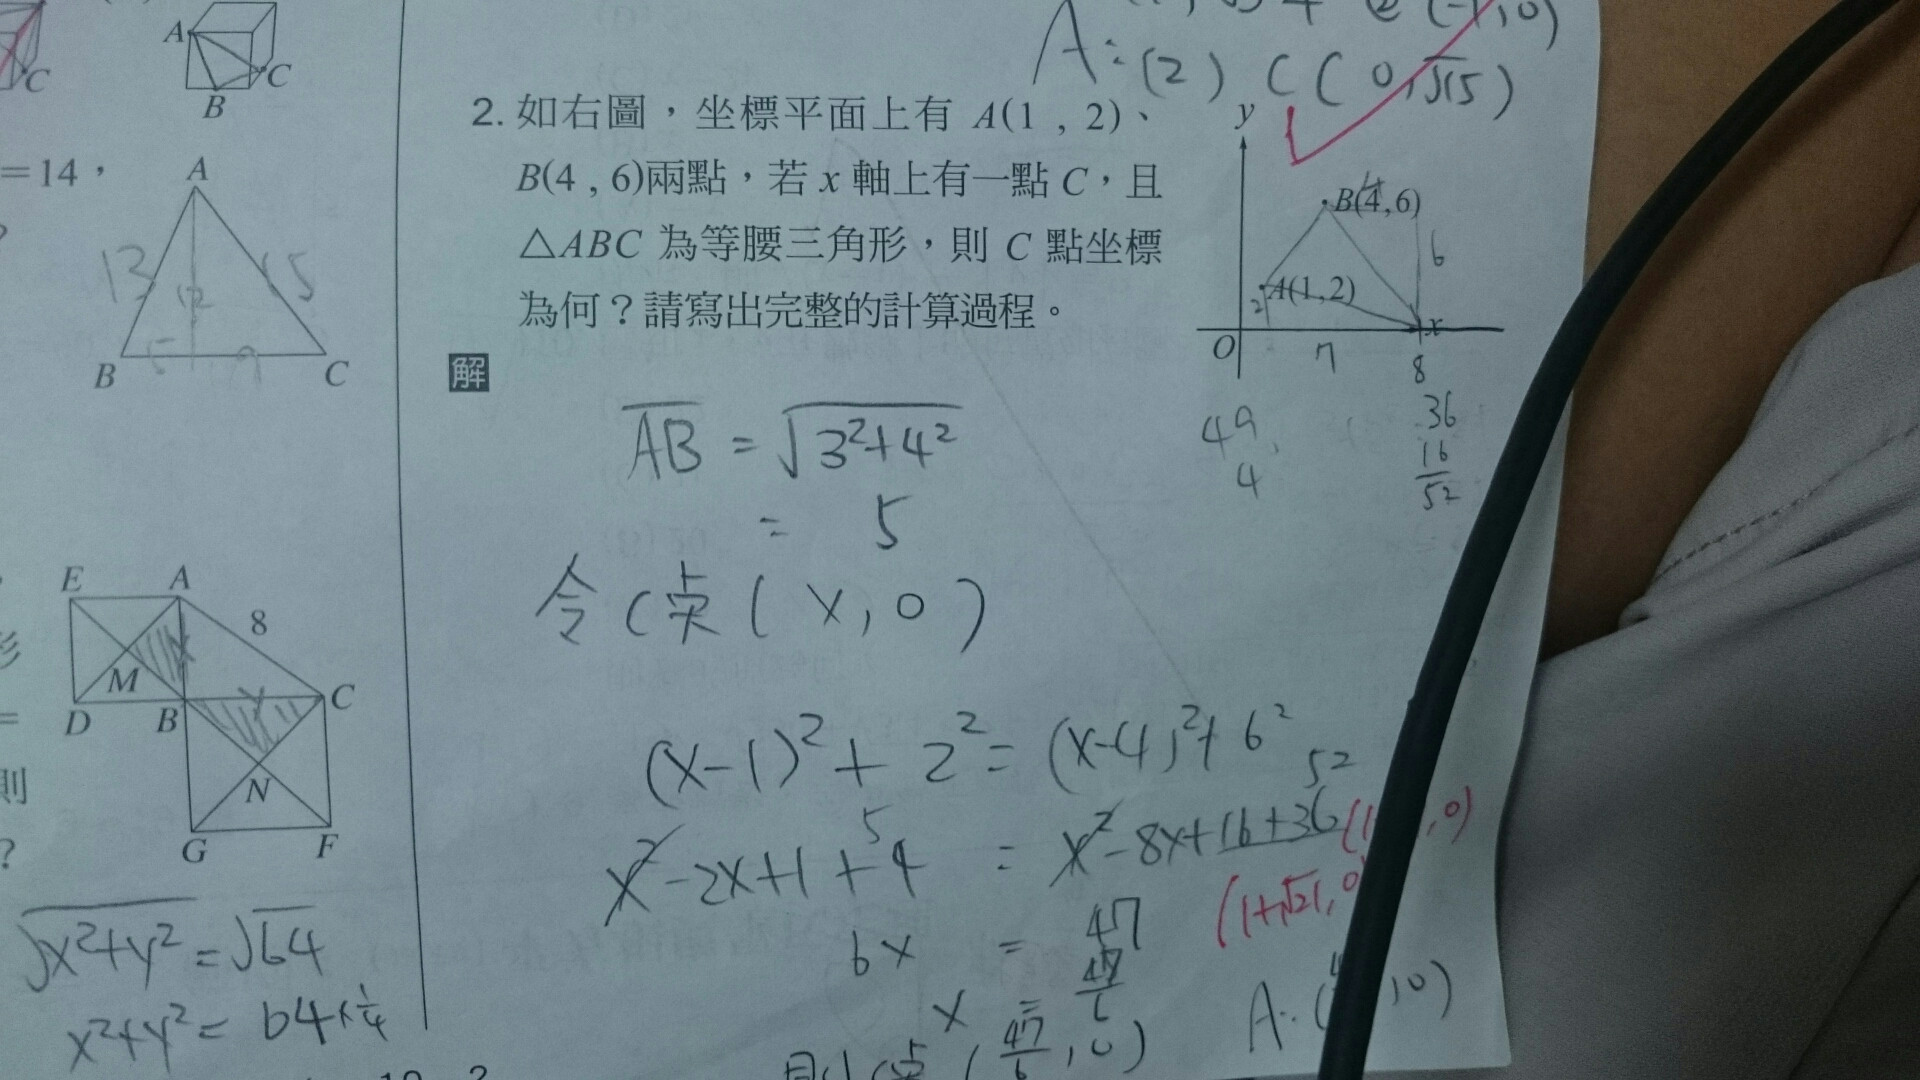 A
C
B
C
=14，
A
13
15
12
5
9
B
C
E
A
8
M
D
B
C
N
G
F
√x²+y² = √64
x²+y² = 64×1/4
A:(2) C(0,√15)
2. 如右圖，坐標平面上有 A(1 , 2)、
B(4 , 6)兩點，若 x 軸上有一點 C，且
△ABC 為等腰三角形，則 C 點坐標
為何？請寫出完整的計算過程。
y
B(4,6)
6
A(1,2)
2
x
O
7
8
49
4
36
16
52
解
AB = √3²+4²
= 5
令C点(x,0)
(x-1)²+2²=(x-4)²+6²
5
52
x²-2x+1+4 = x²-8x+16+36
(1+√21,0
6x = 47
x = 47/6
則C点(47/6,0)